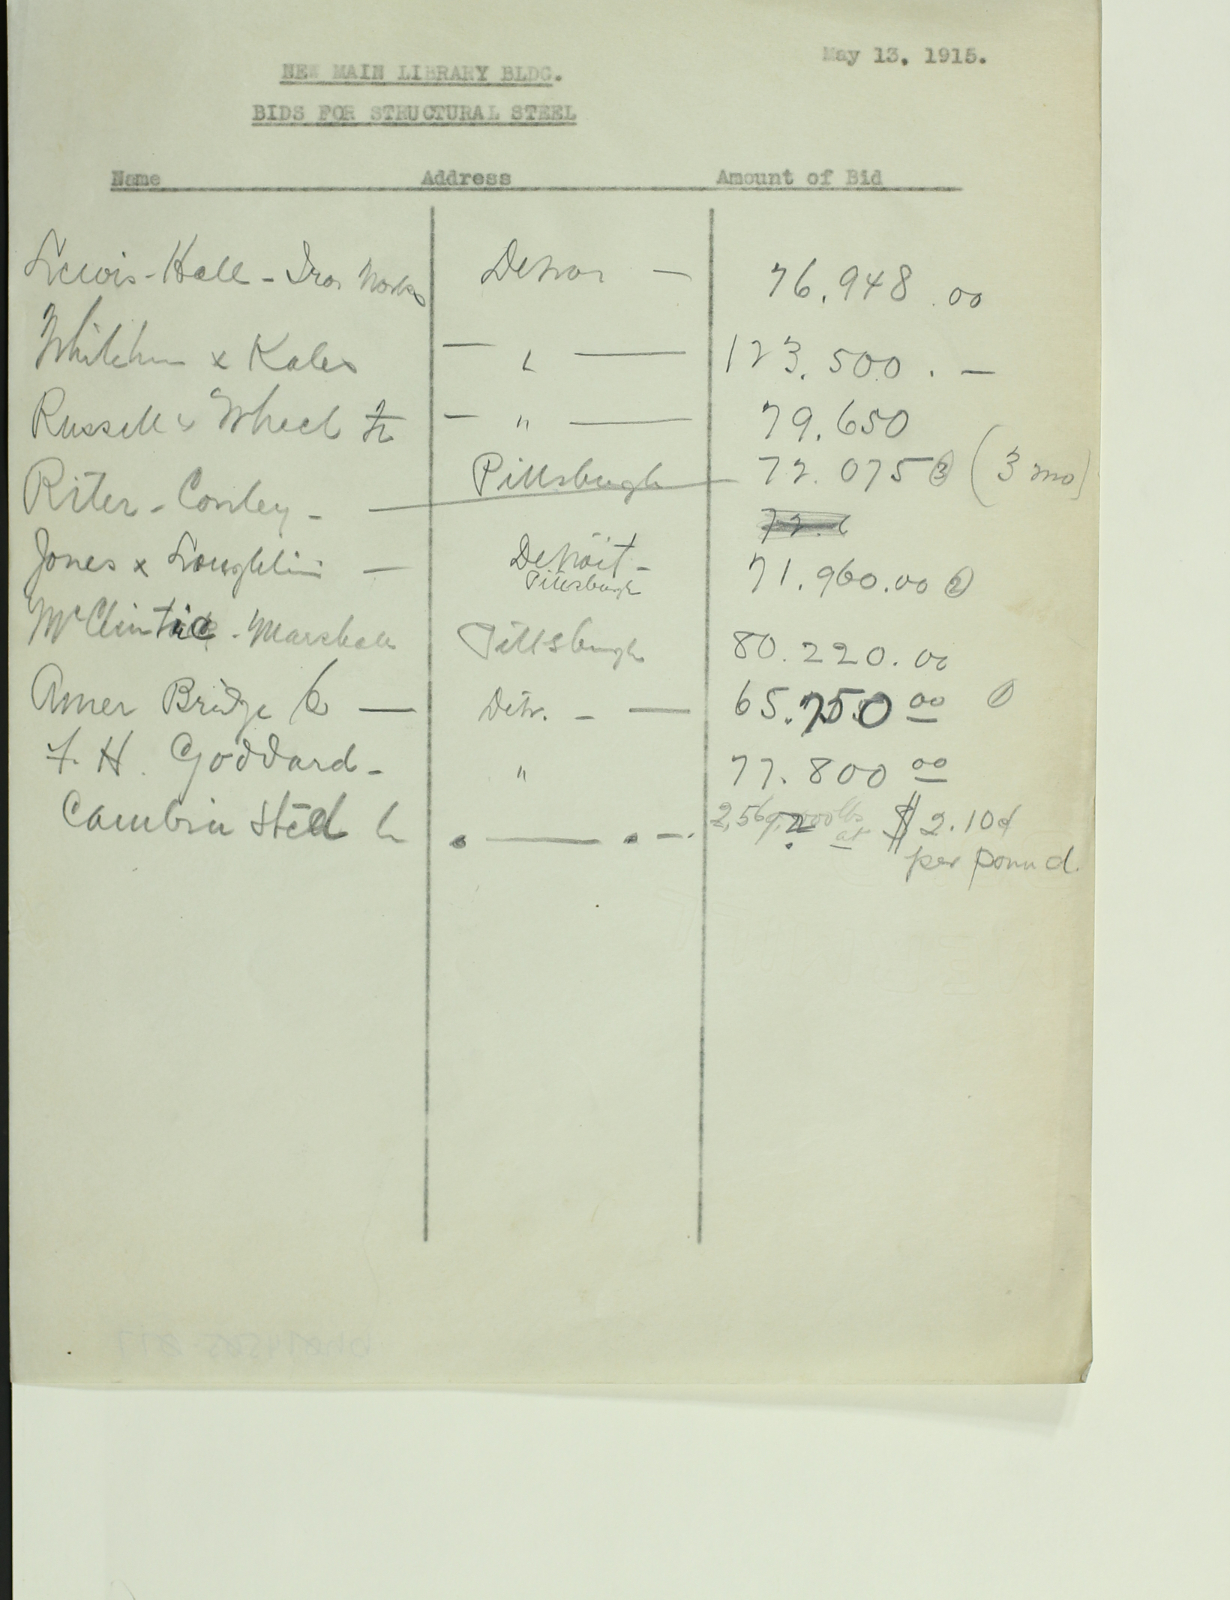 May 13, 1915.
NEW MAIN LIBRARY BLDG.
BIDS FOR STRUCTURAL STEEL
Name Address Amount of Bid
Lewis-Hall-Iron Works Detroi — 76.948.00
& Kales — " — 123.500. —
Russell Wheel — " — 79.650
Riter-Conley - Pittsburgh 72.075 ③ (3 mo)
Jones & Loughlin — Detroit - 71.960.00 ②
Pittsburgh
McClintic - Marshall Pittsburgh 80.220.00
Amer Bridge Co — Detr. - — 65.750 00 ①
F. H. Goddard - " 77.800 00
Cambria Steel Co — at $2.10¢
per pound.